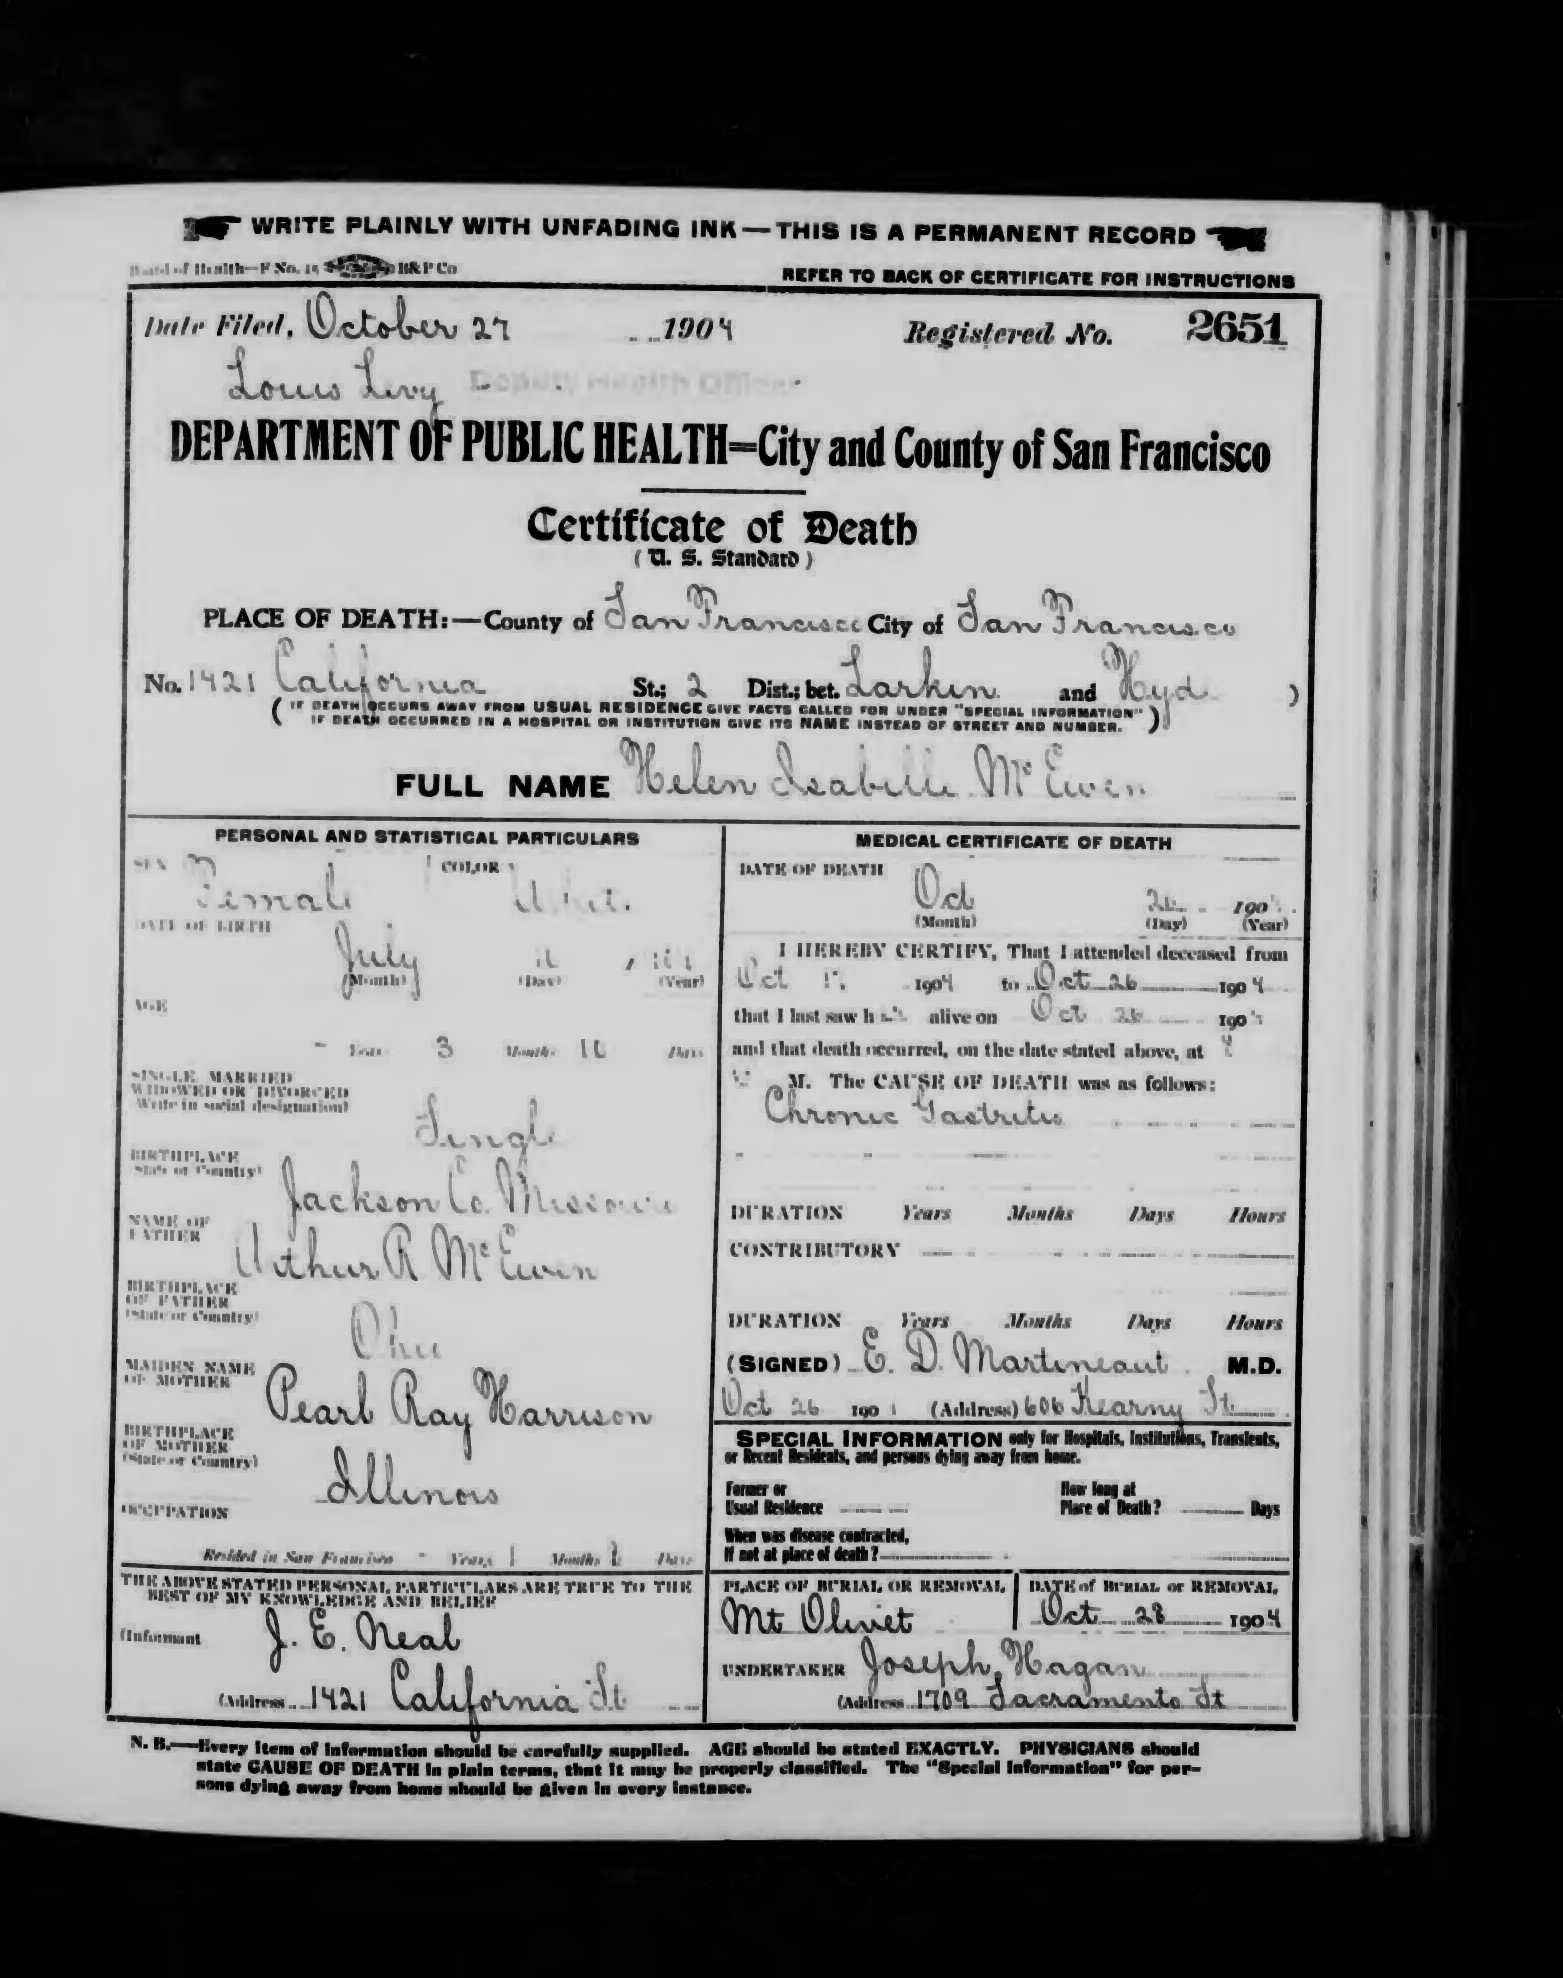 WRITE PLAINLY WITH UNFADING INK — THIS IS A PERMANENT RECORD
Board of Health—F No. 15 H&P Co
REFER TO BACK OF CERTIFICATE FOR INSTRUCTIONS
Date Filed, October 27 1904 Registered No. 2651
Louis Levy Deputy Health Officer
DEPARTMENT OF PUBLIC HEALTH=City and County of San Francisco
Certificate of Death
( U. S. Standard )
PLACE OF DEATH:—County of San Francisco City of San Francisco
No. 1421 California St.; 2 Dist.; bet. Larkin and Hyde )
( IF DEATH OCCURS AWAY FROM USUAL RESIDENCE GIVE FACTS CALLED FOR UNDER "SPECIAL INFORMATION"
IF DEATH OCCURRED IN A HOSPITAL OR INSTITUTION GIVE ITS NAME INSTEAD OF STREET AND NUMBER. )
FULL NAME Helen Isabelle McEwen
PERSONAL AND STATISTICAL PARTICULARS
SEX Female COLOR White
DATE OF BIRTH
July
(Month) (Day) (Year)
AGE
- Years 3 Months 10 Days
SINGLE, MARRIED
WIDOWED OR DIVORCED
(Write in social designation)
Single
BIRTHPLACE
(State or Country)
Jackson Co. Missouri
NAME OF
FATHER
Arthur R McEwen
BIRTHPLACE
OF FATHER
(State or Country)
Ohio
MAIDEN NAME
OF MOTHER
Pearl Ray Harrison
BIRTHPLACE
OF MOTHER
(State or Country)
Illinois
OCCUPATION
Resided in San Francisco - Years 1 Months Days
THE ABOVE STATED PERSONAL PARTICULARS ARE TRUE TO THE
BEST OF MY KNOWLEDGE AND BELIEF
(Informant J. E. Neal
(Address 1421 California St
MEDICAL CERTIFICATE OF DEATH
DATE OF DEATH
Oct 26 190
(Month) (Day) (Year)
I HEREBY CERTIFY, That I attended deceased from
Oct 1904 to Oct 26 1904
that I last saw her alive on Oct 26 190
and that death occurred, on the date stated above, at
M. The CAUSE OF DEATH was as follows:
Chronic Gastritis
DURATION Years Months Days Hours
CONTRIBUTORY
DURATION Years Months Days Hours
(SIGNED) E. D. Martineaut M.D.
Oct 26 190 (Address) 606 Kearny St.
SPECIAL INFORMATION only for Hospitals, Institutions, Transients,
or Recent Residents, and persons dying away from home.
Former or
Usual Residence
How long at
Place of Death? Days
When was disease contracted,
If not at place of death?
PLACE OF BURIAL OR REMOVAL
Mt Olivet
DATE of BURIAL or REMOVAL
Oct 28 1904
UNDERTAKER Joseph Hagan
(Address 1709 Sacramento St
N. B.—Every item of information should be carefully supplied. AGE should be stated EXACTLY. PHYSICIANS should
state CAUSE OF DEATH in plain terms, that it may be properly classified. The "Special Information" for per-
sons dying away from home should be given in every instance.